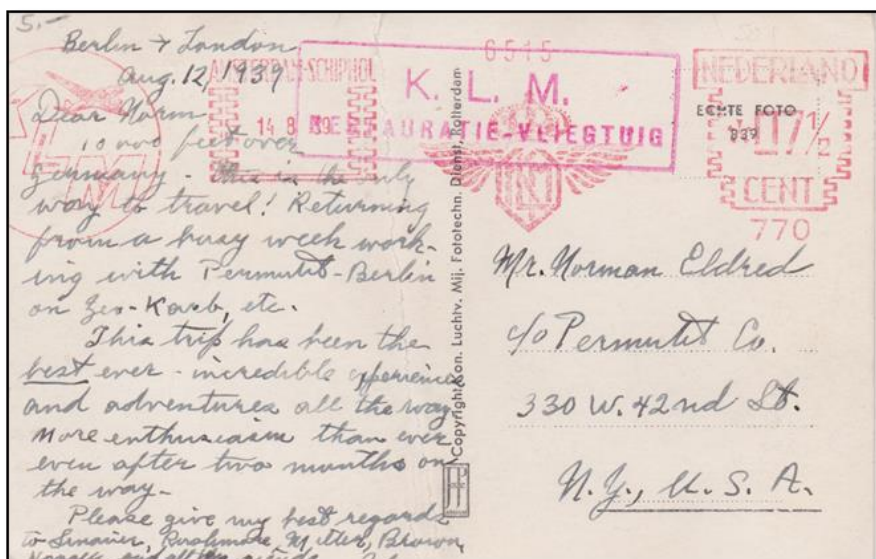 5.-
Berlin → London
Aug. 12, 1939
Dear Norm
10 000 feet over
Germany - this is the only
way to travel! Returning
from a busy week work-
ing with Permutit-Berlin
on Zeo-Karb, etc.
This trip has been the
best ever - incredible experiences
and adventures all the way
More enthusiasm than ever
even after two months on
the way -
Please give my best regards
to Brown,
KLM
AMSTERDAM-SCHIPHOL
14 8 39
6515
K. L. M.
RESTAURATIE-VLIEGTUIG
KLM
NEDERLAND
ECHTE FOTO
839
17½
CENT
770
Copyright Kon. Luchtv. Mij. Fototechn. Dienst, Rotterdam
Mr. Norman Eldred
c/o Permutit Co.
330 W. 42nd St.
N.Y., U. S. A.